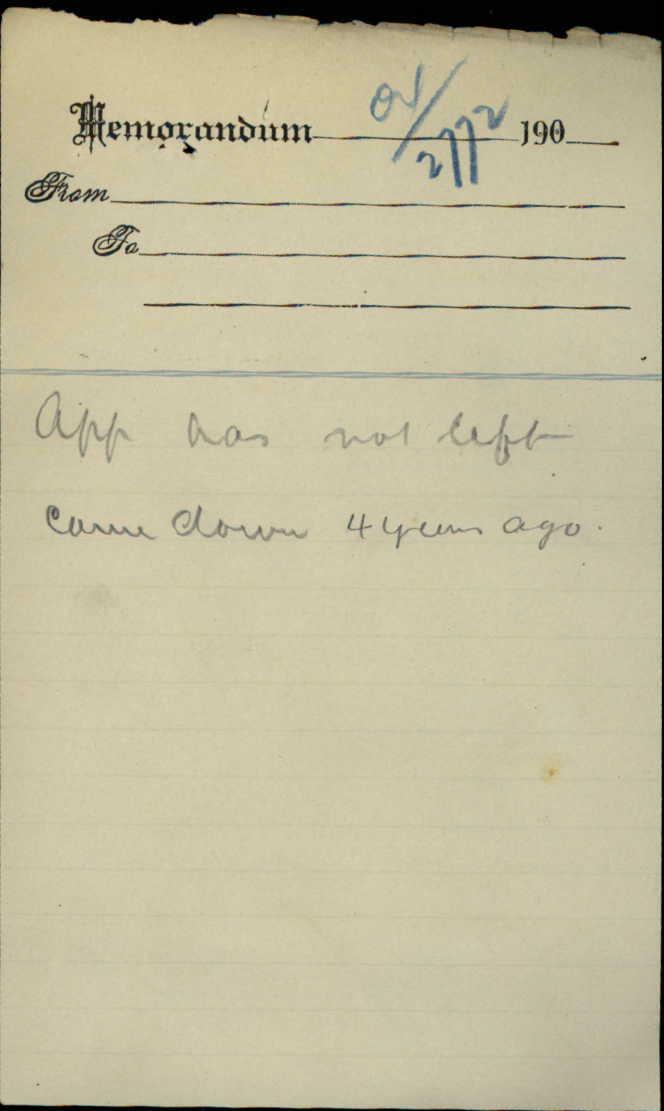 04/2772
Memorandum 190
From
To
App has not left
Came down 4 years ago.